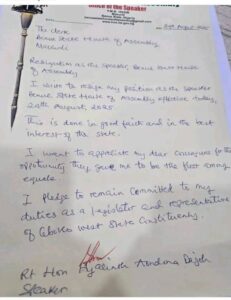 Office of the Speaker
24th August 2025
The Clerk
Benue State House of Assembly
Makurdi
Resignation as the Speaker, Benue State House
of Assembly
I want to resign my position as the Speaker
Benue State House of Assembly effective today,
24th August, 2025
This is done in good faith and in the best
interest of the state.
I want to appreciate my dear Colleagues for the
opportunity they gave me to be the first among
equals.
I pledge to remain committed to my
duties as a legislator and representative
of Gboko West State Constituency.
Rt Hon Aondona Dajoh
Speaker